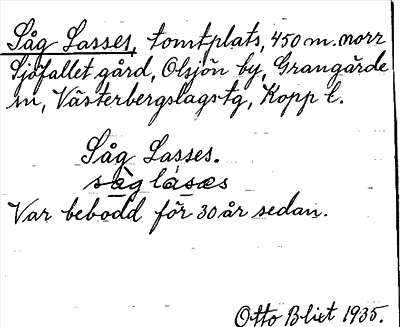 Såg Lasses, tomtplats, 450 m. norr
Sjöfallet gård, Olsjön by, Grangärde
sn, Västerbergslags tg, Kopp l.
Såg Lasses.
såg lásæs
Var bebodd för 30 år sedan.
Otto Blixt 1935.